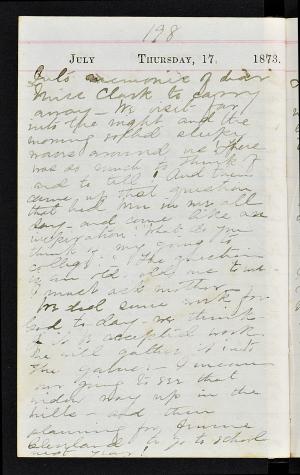 198
JULY THURSDAY, 17. 1873.
of dear
Miss Clark to carry
away – We visit far
into the night and the
morning
around us There
was so much to think of
and to tell! And then
came up that question
that had been in me all
day – and come like an
inspiration! What do you
think of my going to
college! The question
is
I must ask mother.
We did some work for
God to-day – we think
it is accepted work
He will gather it into
The – I mean
our going to see that
widow way up in the
hills – and then
planning for
Cleveland to go to school
next year!